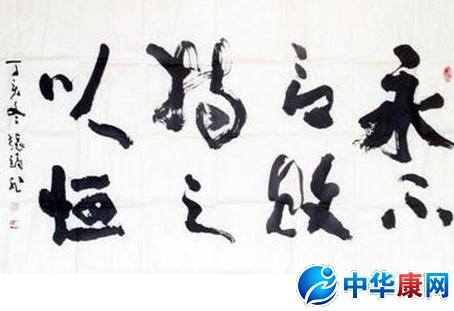 永不
言敗
持之
以恒
丁亥冬
中华康网